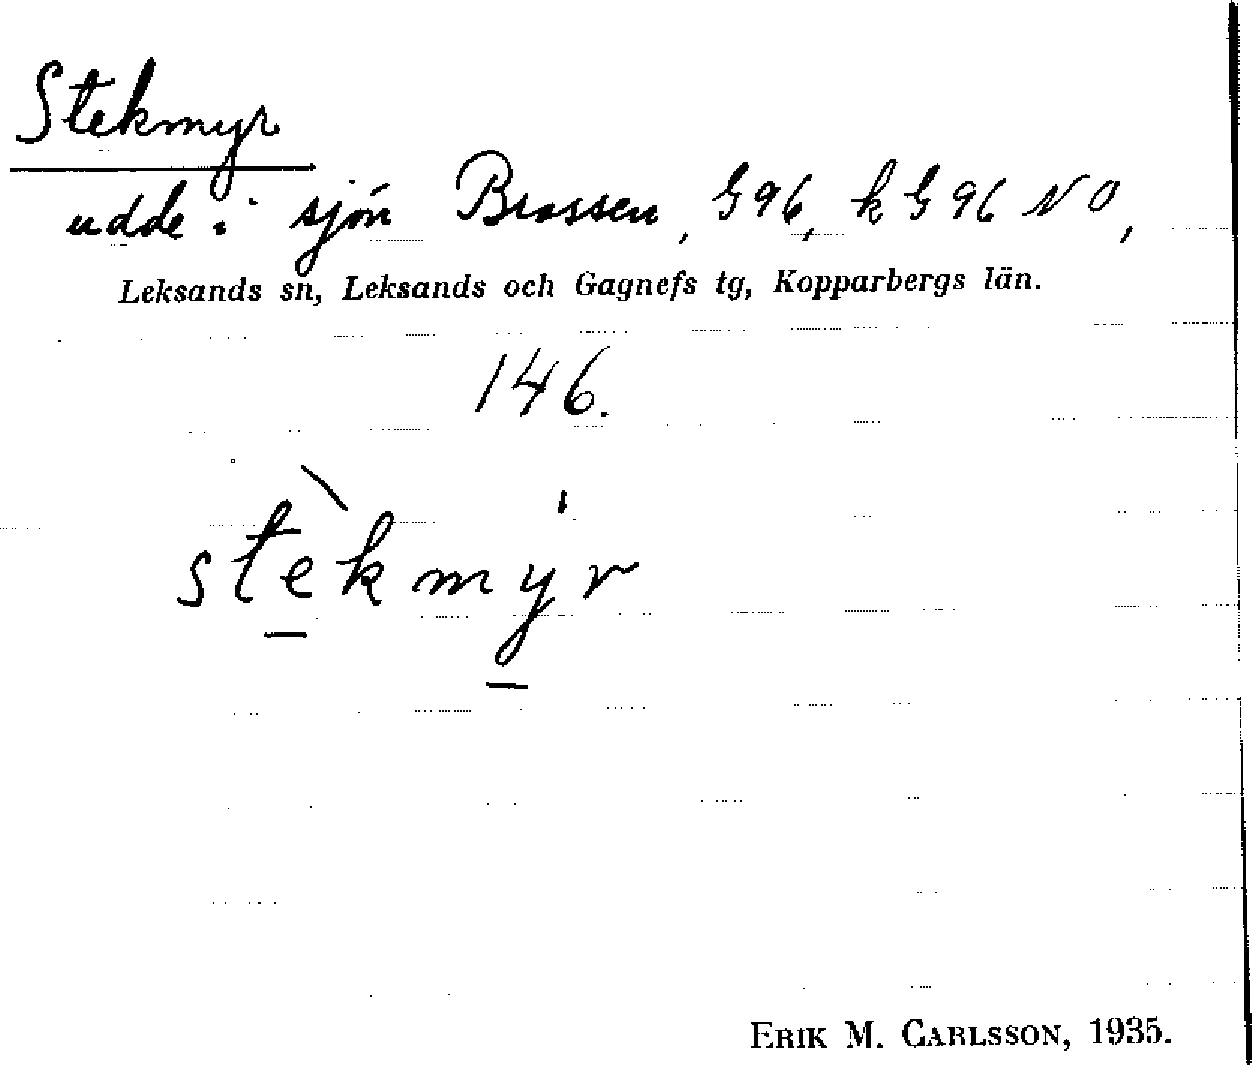 Stekmyr
udde i sjön Brassen, G96, k G96 NO,
Leksands sn, Leksands och Gagnefs tg, Kopparbergs län.
146.
stèkmyr
ERIK M. CARLSSON, 1935.